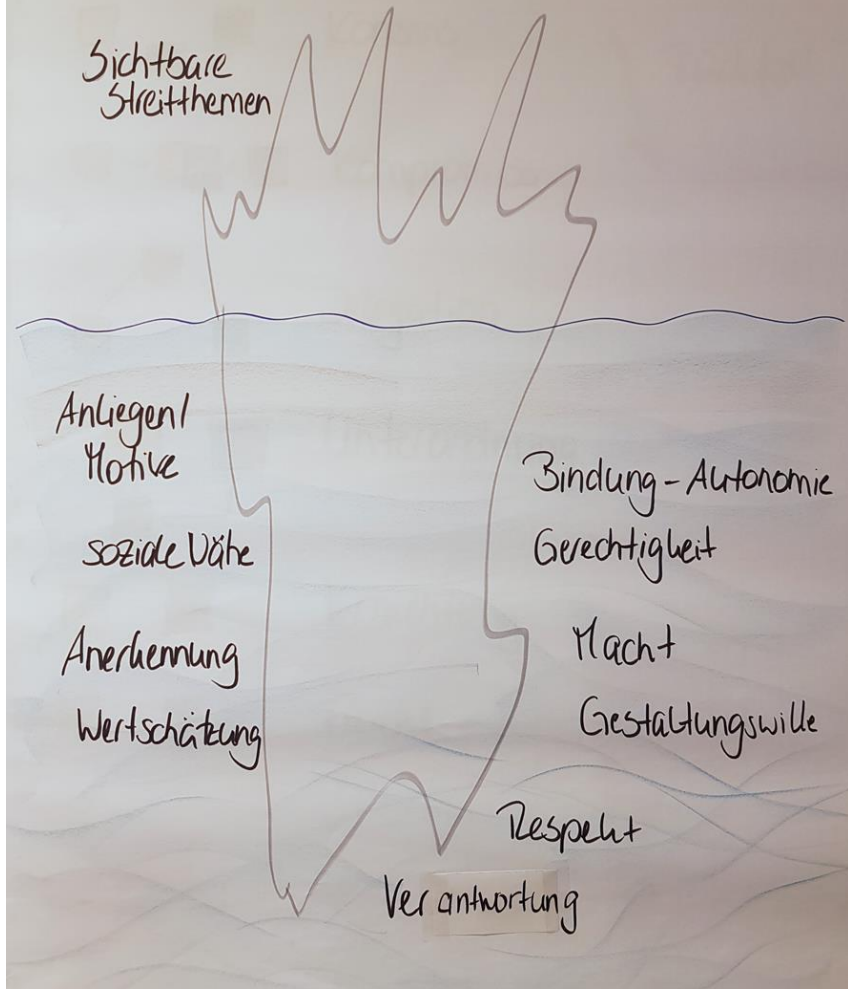 Sichtbare
Streitthemen
Anliegen/
Motive
soziale Nähe
Anerkennung
Wertschätzung
Bindung - Autonomie
Gerechtigkeit
Macht
Gestaltungswille
Respekt
Verantwortung